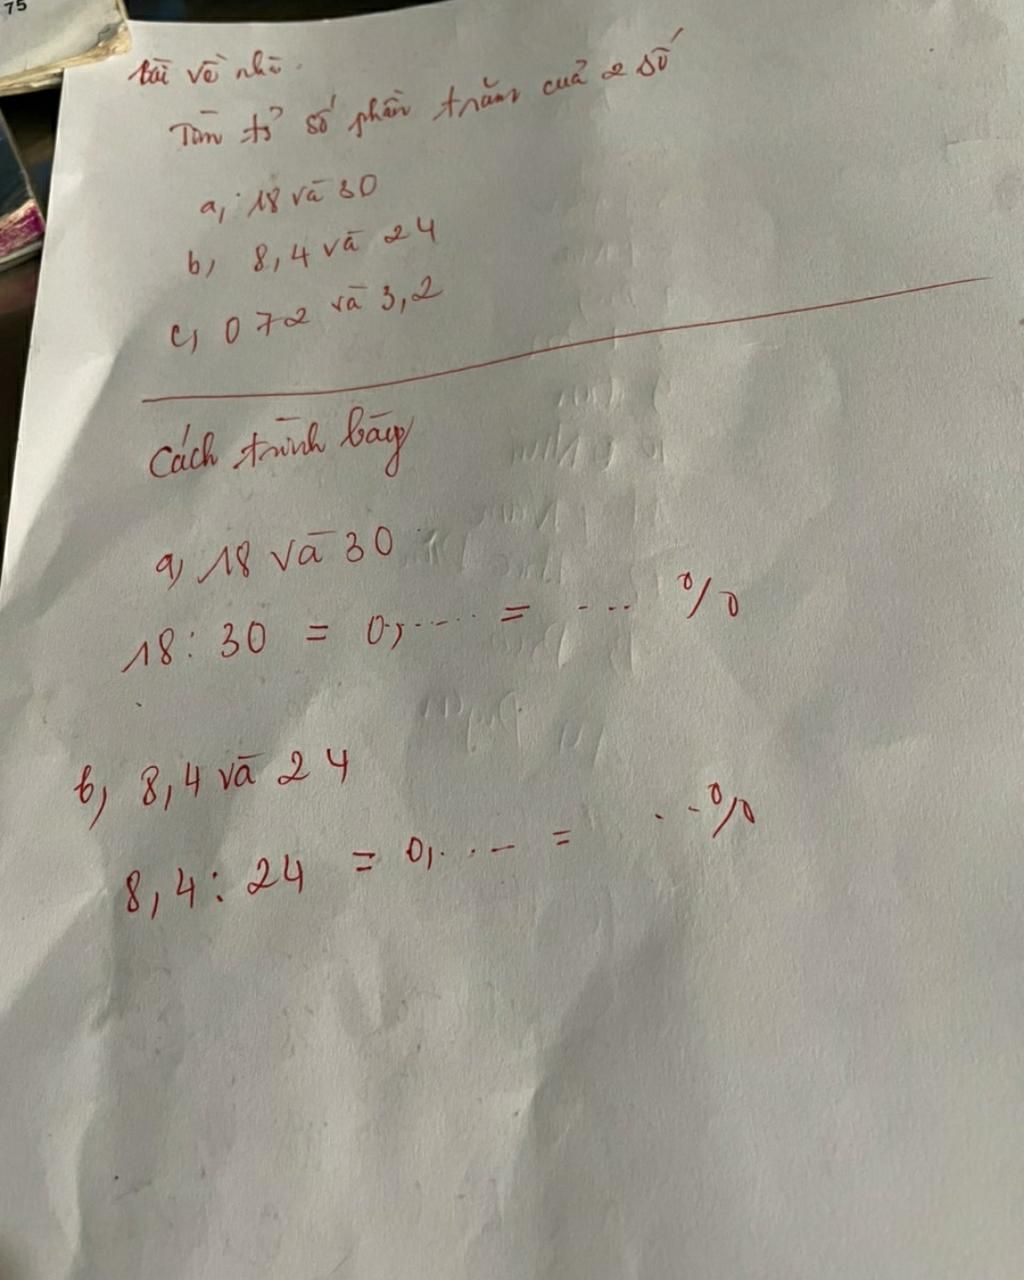 75
bài về nhà.
Tìm tỉ số phần trăm của 2 số
a, 18 và 30
b, 8,4 và 24
c, 0 72 và 3,2
Cách trình bày
a, 18 và 30
18 : 30 = 0,..... = ... %
b, 8,4 và 24
8,4 : 24 = 0,.... = ...%